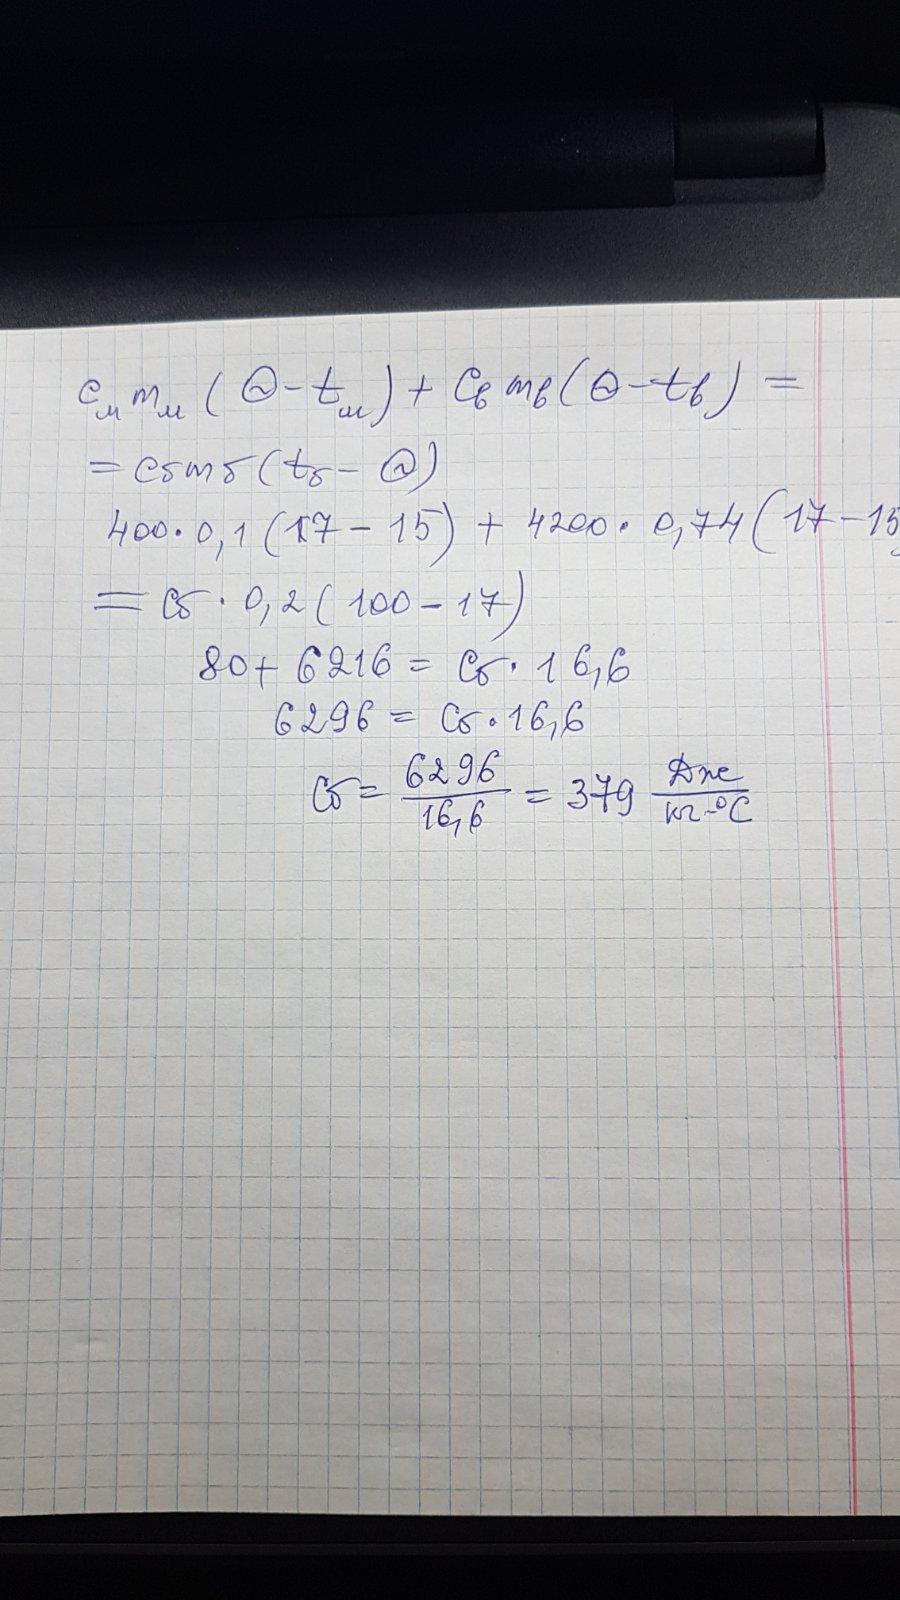 cмmм(Θ-tм)+Cвmв(Θ-tв)=
=cбmб(tб-Θ)
400·0,1(17-15)+4200·0,74(17-15)
=cб·0,2(100-17)
80+6216=cб·16,6
6296=cб·16,6
cб=6296/16,6=379 Дж/кг·°C